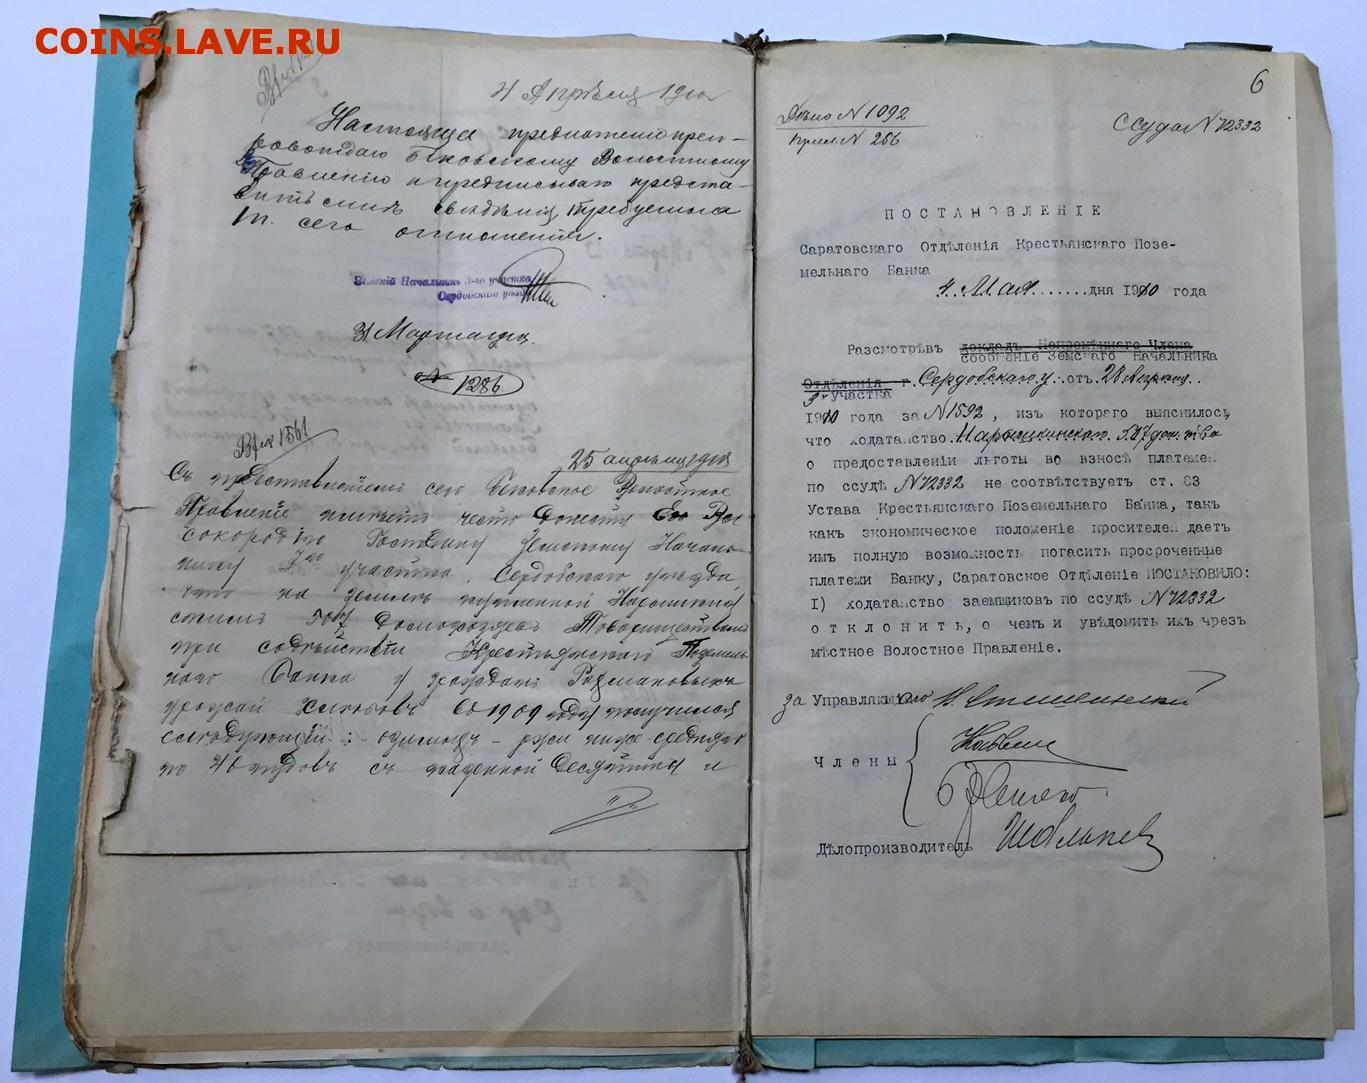 COINS.LAVE.RU
4 Апрѣля 1910
препро-
вождаю Бековскому Волостному
Правленію и предписываю предста-
вить мнѣ свѣдѣнія, требуемыя
сего отношенія.
Земскій Начальникъ 3-го участка
Сердобскаго уѣзда
31 Марта
№ 1286
Вхд 1561
25 апрѣля 1910
Съ представленіемъ сего Бековское Волостное
Правленіе имѣетъ честь донести Его Вы-
сокородію Господину Земскому Началь-
нику 3го участка, Сердобскаго уѣзда,
что на землѣ купленной Нарышкин-
скимъ домохозяевъ Товариществомъ
при содѣйствіи Крестьянскаго Поземель-
наго Банка у
урожай хлѣбовъ въ 1909 году получился
слѣдующій: озимыхъ - ржи ниже средняго
по 40 пудовъ съ казенной десятины и
6
Дѣло № 1092
№ 256
Ссуда № 72332
ПОСТАНОВЛЕНІЕ
Саратовскаго Отдѣленія Крестьянскаго Позе-
мельнаго Банка
4 Мая дня 1910 года
Разсмотрѣвъ докладъ Непремѣннаго Члена
сообщеніе Земскаго Начальника
Отдѣленія г. Сердобскаго у. отъ 28 Апрѣля
3 участка
1910 года за № 1592, изъ котораго выяснилось,
что ходатайство Нарышкинскаго
о предоставленіи льготы во взносѣ платежей
по ссудѣ № 72332 не соотвѣтствуетъ ст. 83
Устава Крестьянскаго Поземельнаго Банка, такъ
какъ экономическое положеніе просителей даетъ
имъ полную возможность погасить просроченные
платежи Банку, Саратовское Отдѣленіе ПОСТАНОВИЛО:
I) ходатайство заемщиковъ по ссудѣ № 72332
отклонить, о чемъ и увѣдомить ихъ чрезъ
мѣстное Волостное Правленіе.
за Управляющаго
Члены
Дѣлопроизводитель